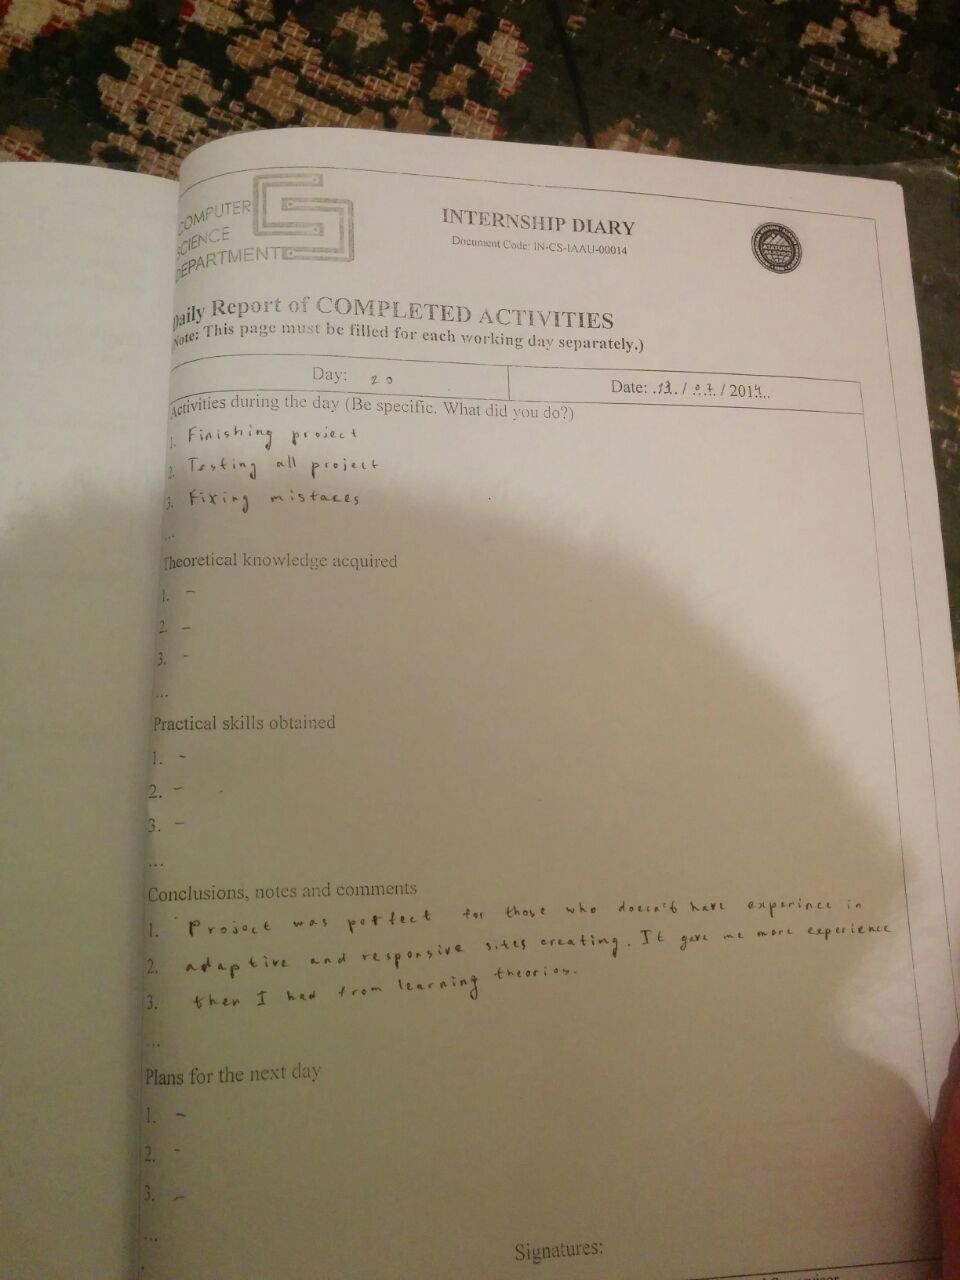 COMPUTER
SCIENCE
DEPARTMENT
INTERNSHIP DIARY
Document Code: IN-CS-IAAU-00014
Daily Report of COMPLETED ACTIVITIES
Note: This page must be filled for each working day separately.)
Day: 20
Date: / 07 / 201
Activities during the day (Be specific. What did you do?)
1. Finishing project
2. Testing all project
3. Fixing mistaces
...
Theoretical knowledge acquired
1. -
2. -
3. -
...
Practical skills obtained
1. -
2. -
3. -
...
Conclusions, notes and comments
1. Project was perfect for those who doesn't have experince in
2. adaptive and responsive sites creating. It gave me more experience
3. then I had from learning theorios.
...
Plans for the next day
1. -
2. -
3. -
...
Signatures: